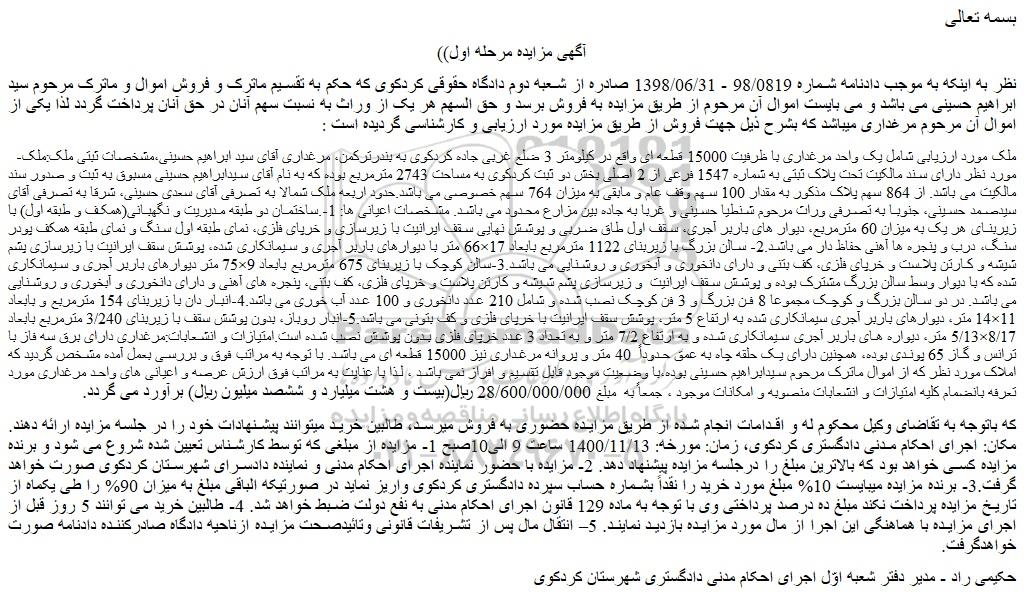 بسمه تعالی
آگهی مزایده مرحله اول))
نظر به اینکه به موجب دادنامه شماره 98/0819 ـ 1398/06/31 صادره از شعبه دوم دادگاه حقوقی کردکوی که حکم به تقسیم ماترک و فروش اموال و ماترک مرحوم سید
ابراهیم حسینی می باشد و می بایست اموال آن مرحوم از طریق مزایده به فروش برسد و حق السهم هر یک از وراث به نسبت سهم آنان در حق آنان پرداخت گردد لذا یکی از
اموال آن مرحوم مرغداری میباشد که بشرح ذیل جهت فروش از طریق مزایده مورد ارزیابی و کارشناسی گردیده است :
ملک مورد ارزیابی شامل یک واحد مرغداری با ظرفیت 15000 قطعه ای واقع در کیلومتر 3 ضلع غربی جاده کردکوی به بندرترکمن، مرغداری آقای سید ابراهیم حسینی،مشخصات ثبتی ملک:ملک-
مورد نظر دارای سند مالکیت تحت پلاک ثبتی به شماره 1547 فرعی از 2 اصلی بخش دو ثبت کردکوی به مساحت 2743 مترمربع بوده که به نام آقای سیدابراهیم حسینی مسبوق به ثبت و صدور سند
مالکیت می باشد. از 864 سهم پلاک مذکور به مقدار 100 سهم وقف عام و مابقی به میزان 764 سهم خصوصی می باشد.حدود اربعه ملک شمالا به تصرفی آقای سعدی حسینی، شرقا به تصرفی آقای
سیدصمد حسینی، جنوبا به تصرفی وراث مرحوم شنطیا حسینی و غربا به جاده بین مزارع محدود می باشد. مشخصات اعیانی ها: 1-.ساختمان دو طبقه مدیریت و نگهبانی(همکف و طبقه اول) با
زیربنای هر یک به میزان 60 مترمربع، دیوار های باربر آجری، سقف اول طاق ضربی و پوشش نهایی سقف ایرانیت با زیرسازی و خرپای فلزی، نمای طبقه اول سنگ و نمای طبقه همکف پودر
سنگ، درب و پنجره ها آهنی حفاظ دار می باشد.2- سالن بزرگ با زیربنای 1122 مترمربع بابعاد 17×66 متر با دیوارهای باربر آجری و سیمانکاری شده، پوشش سقف ایرانیت با زیرسازی پشم
شیشه و کارتن پلاست و خرپای فلزی، کف بتنی و دارای دانخوری و آبخوری و روشنایی می باشد.3-سالن کوچک با زیربنای 675 مترمربع بابعاد 9×75 متر دیوارهای باربر آجری و سیمانکاری
شده که با دیوار وسط سالن بزرگ مشترک بوده و پوشش سقف ایرانیت و زیرسازی پشم شیشه و کارتن پلاست و خرپای فلزی، کف بتنی، پنجره های آهنی و دارای دانخوری و آبخوری و روشنایی
می باشد. در دو سالن بزرگ و کوچک مجموعا 8 فن بزرگ و 3 فن کوچک نصب شده و شامل 210 عدد دانخوری و 100 عدد آب خوری می باشد.4-انبار دان با زیربنای 154 مترمربع و بابعاد
11×14 متر، دیوارهای باربر آجری سیمانکاری شده به ارتفاع 5 متر، پوشش سقف ایرانیت با خرپای فلزی و کف بتونی می باشد.5-انبار روباز، بدون پوشش سقف با زیربنای 3/240 مترمربع بابعاد
8/17×5/13 متر، دیواره های باربر آجری سیمانکاری شده و به ارتفاع 7/2 متر و به تعداد 3 عدد خرپای فلزی بدون پوشش نصب شده است.امتیازات و انشعابات:مرغداری دارای برق سه فاز با
ترانس و گاز 65 پوندی بوده، همچنین دارای یک حلقه چاه به عمق حدوداً 40 متر و پروانه مرغداری نیز 15000 قطعه ای می باشد. با توجه به مراتب فوق و بررسی بعمل آمده مشخص گردید که
املاک مورد نظر که از اموال ماترک مرحوم سیدابراهیم حسینی بوده،با وضعیت موجود قابل تقسیم و افراز نمی باشد . لذا با عنایت به مراتب فوق ارزش عرصه و اعیانی های واحد مرغداری مورد
تعرفه بانضمام کلیه امتیازات و انشعابات منصوبه و امکانات موجود ، جمعاً به مبلغ 28/600/000/000 ریال(بیست و هشت میلیارد و ششصد میلیون ریال) برآورد می گردد.
که باتوجه به تقاضای وکیل محکوم له و اقدامات انجام شده از طریق مزایده حضوری به فروش میرسد، طالبین خرید میتوانند پیشنهادات خود را در جلسه مزایده ارائه دهند.
مکان: اجرای احکام مدنی دادگستری کردکوی، زمان: مورخه: 1400/11/13 ساعت 9 الی10صبح 1- مزایده از مبلغی که توسط کارشناس تعیین شده شروع می شود و برنده
مزایده کسی خواهد بود که بالاترین مبلغ را درجلسه مزایده پیشنهاد دهد. 2- مزایده با حضور نماینده اجرای احکام مدنی و نماینده دادسرای شهرستان کردکوی صورت خواهد
گرفت.3- برنده مزایده میبایست 10% مبلغ مورد خرید را نقداً بشماره حساب سپرده دادگستری کردکوی واریز نماید در صورتیکه الباقی مبلغ به میزان 90% را طی یکماه از
تاریخ مزایده پرداخت نکند مبلغ ده درصد پرداختی وی با توجه به ماده 129 قانون اجرای احکام مدنی به نفع دولت ضبط خواهد شد. 4- طالبین خرید می توانند 5 روز قبل از
اجرای مزایده با هماهنگی این اجرا از مال مورد مزایده بازدید نمایند. 5– انتقال مال پس از تشریفات قانونی وتائیدصحت مزایده ازناحیه دادگاه صادرکننده دادنامه صورت
خواهدگرفت.
حکیمی راد ـ مدیر دفتر شعبه اوّل اجرای احکام مدنی دادگستری شهرستان کردکوی